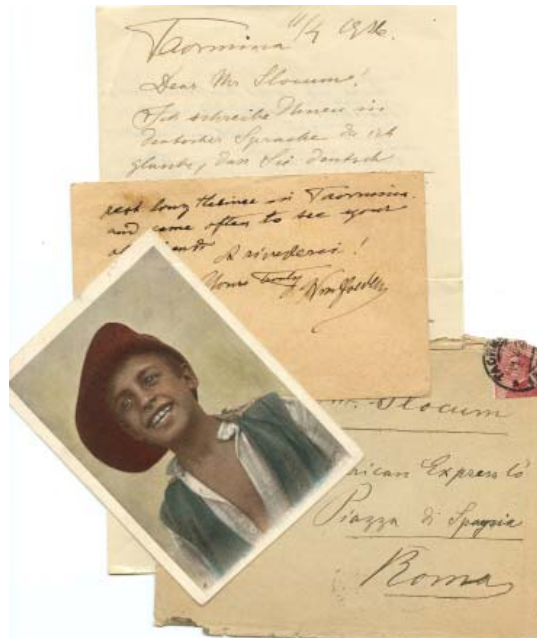 Taormina 11/4 1926.
Dear Mr Slocum!
Ich schreibe Ihnen in
deutscher Sprache da ich
glaube, dass Sie deutsch
rest long
in Taormina.
and came often to see your
A rivederci!
Yours Truly
Mr. Slocum
rican Express Co
Piazza di Spagnia
Roma